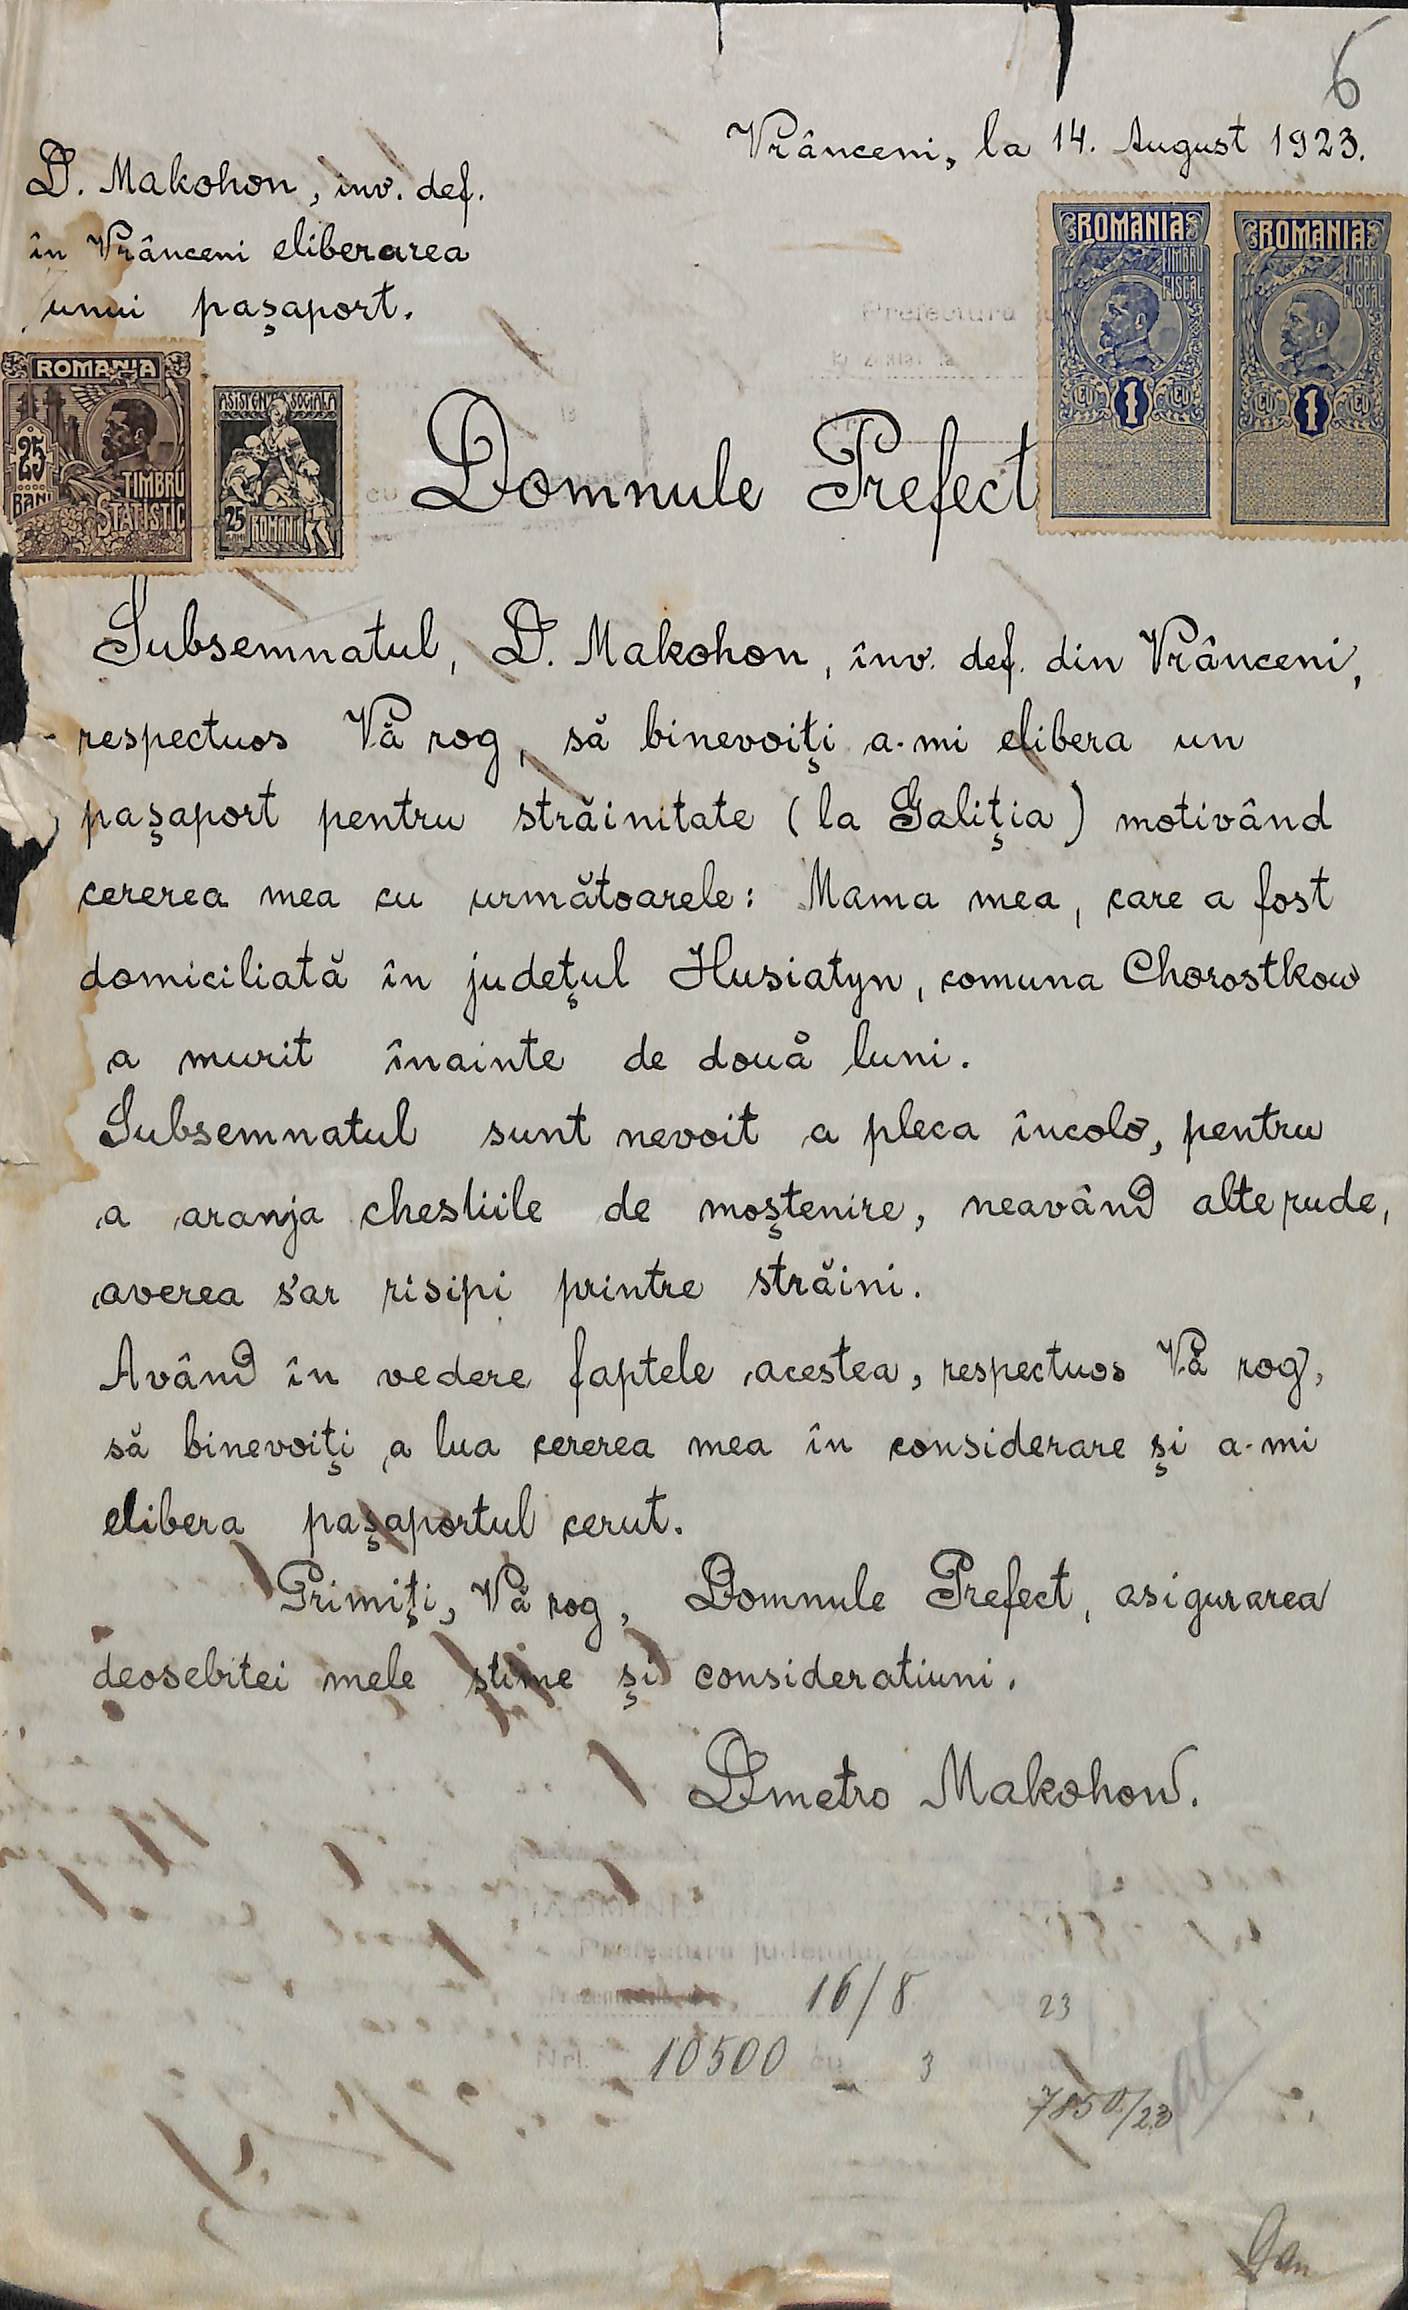 6
Vrânceni, la 14. August 1923.
D. Makohon, inv. def.
în Vrânceni eliberarea
unui pașaport.
ROMANIA
TIMBRU
FISCAL
LEU 1 LEU
ROMANIA
TIMBRU
FISCAL
LEU 1 LEU
ROMANIA
25
BANI
TIMBRU
STATISTIC
ASISTENȚA SOCIALA
25
BANI
ROMANIA
Domnule Prefect
Subsemnatul, D. Makohon, înv. def. din Vrânceni,
respectuos Vă rog, să binevoiți a-mi elibera un
pașaport pentru străinitate (la Galiția) motivând
cererea mea cu următoarele: Mama mea, care a fost
domiciliată în județul Husiatyn, comuna Chorostkow
a murit înainte de două luni.
Subsemnatul sunt nevoit a pleca încolo, pentru
a aranja chestiile de moștenire, neavând alte rude,
averea s'ar risipi printre străini.
Având în vedere faptele acestea, respectuos Vă rog,
să binevoiți a lua cererea mea în considerare și a-mi
elibera pașaportul cerut.
Primiți, Vă rog, Domnule Prefect, asigurarea
deosebitei mele stime și consideratiuni.
Dmetro Makohon.
Prefectura județului
16/8 23
10500 cu 3
7850/23